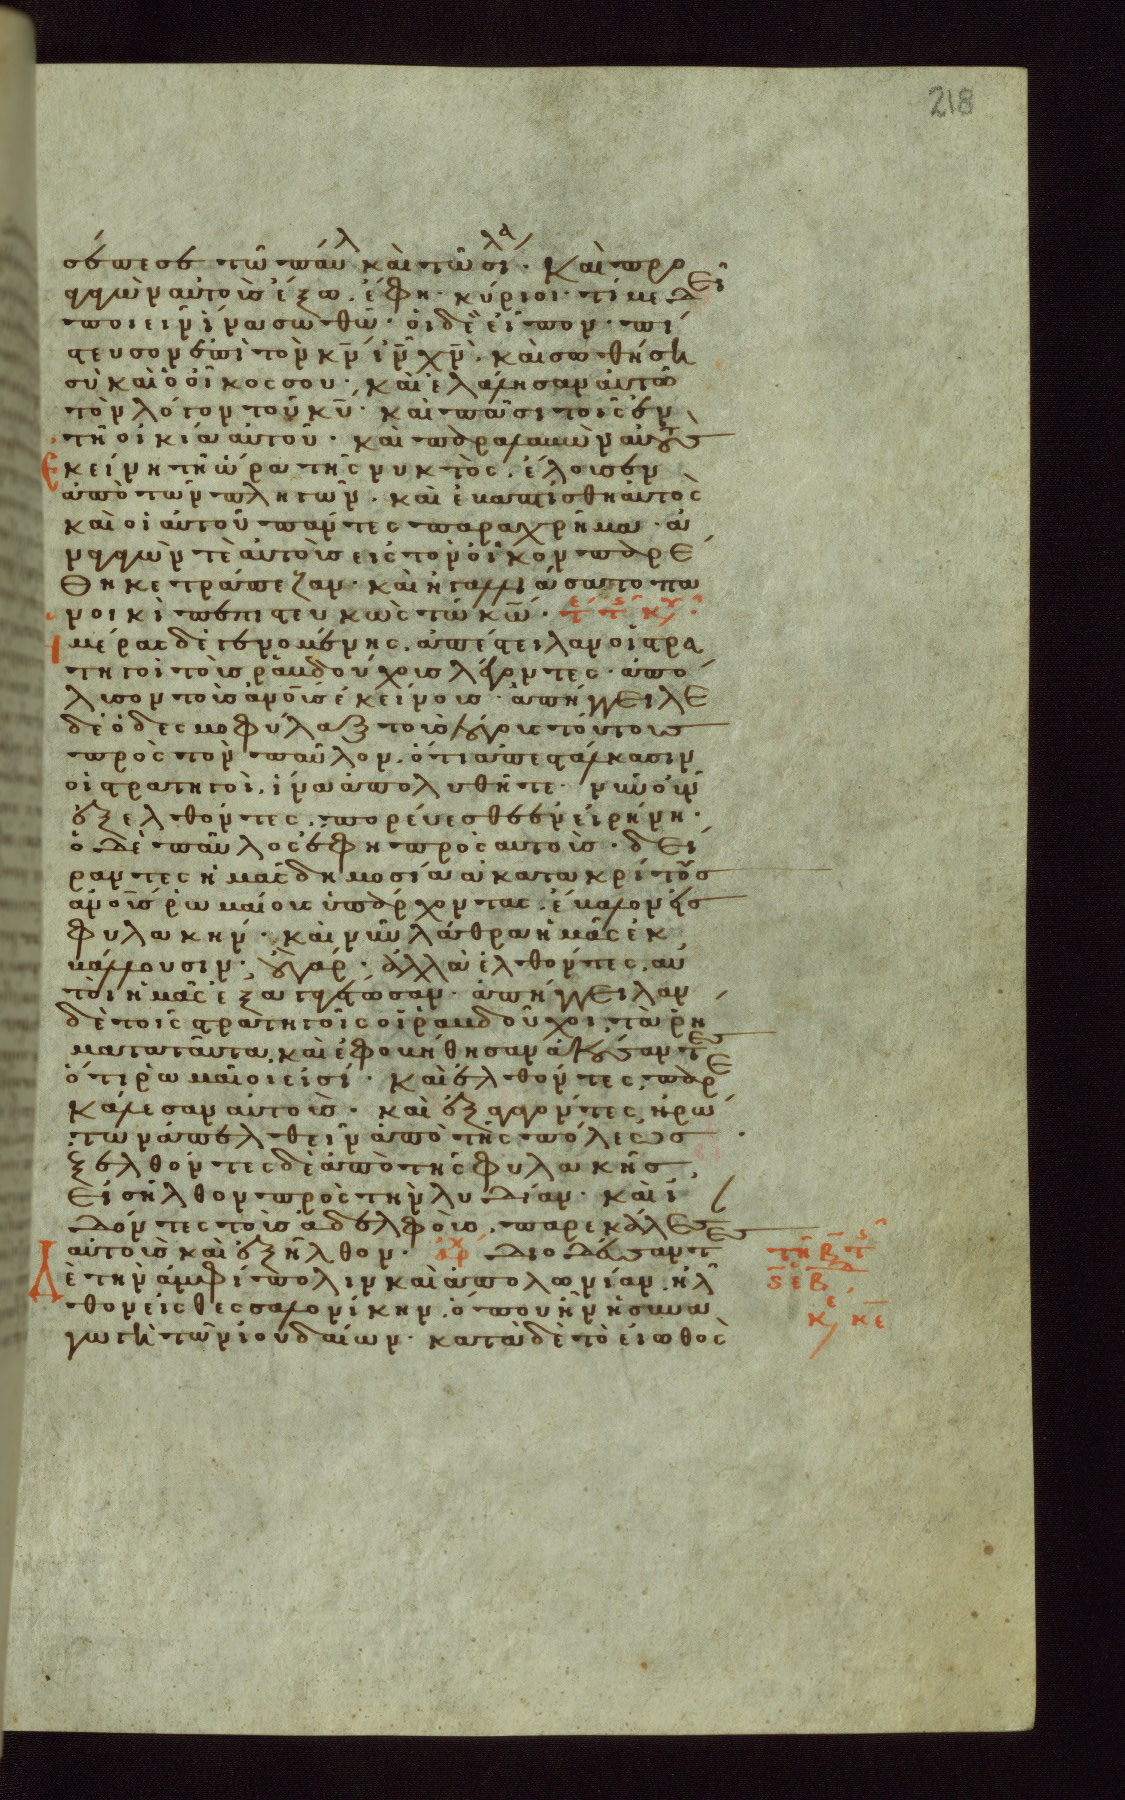 218
σέπεσε τῶ παύλ καὶ τῶ σίλα. Καὶ προ
αγαγὼν αὐτοὺσ ἔξω. ἔφη· κύριοι· τί με δεῖ
ποιεῖν ἵνα σωθῶ· οἱ δὲ εἶπον· πί
στευσον ἐπὶ τὸν κν̄ ιν̄ χν̄. καὶ σωθήση
σὺ καὶ ὁ οἶκος σου· καὶ ἐλάλησαν αὐτῶ
τὸν λόγον τοῦ κῡ· καὶ πᾶσι τοῖς ἐν
τῆ οἰκία αὐτοῦ· καὶ παραλαβὼν αὐτοὺς
ἐκείνη τῆ ὥρα τῆς νυκτὸς. ἔλουσεν
ἀπὸ τῶν πληγῶν. καὶ ἐβαπτίσθη αὐτὸς
καὶ οἱ αὐτοῦ πάντες παραχρῆμα. ἀ
ναγαγών τὲ αὐτοὺσ εἰς τὸν οἶκον παρέ
θηκε τράπεζαν· καὶ ἠγαλλιάσατο πα
νοικὶ πεπιστευκὼς τῶ κω̄·
Ημέρας δὲ γενομένης. ἀπέστειλαν οἱ στρα
τηγοὶ τοὺσ ῥαβδούχουσ λέγοντες· ἀπό
λυσον τοὺσ ανο̄υσ ἐκείνουσ· ἀπήγγειλε
δὲ ὁ δεσμοφύλαξ τοὺσ λόγους τούτουσ
πρὸς τὸν παῦλον. ὅτι ἀπεστάλκασιν
οἱ στρατηγοὶ. ἵνα ἀπολυθῆτε· νῦν οὖν
ἐξελθόντες. πορεύεσθε ἐν εἰρήνη·
ὁ δὲ παῦλος ἔφη πρὸς αὐτοὺσ· δεί
ραντες ἡμᾶς δημοσία ἀκατακρίτους
ανο̄υσ ῥωμαίους ὑπάρχοντας. ἔβαλον εἰς
φυλακήν· καὶ νῦν λάθρα ἡμᾶς ἐκ
βάλλουσιν· οὐ γάρ· ἀλλὰ ἐλθόντες. αὐ
τοὶ ἡμᾶς ἐξαγαγέτωσαν· ἀπήγγειλαν
δὲ τοῖς στρατηγοῖς οἱ ῥαβδοῦχοι τὰ ῥή
ματα ταῦτα. καὶ ἐφοβήθησαν ἀκούσαντες
ὅτι ῥωμαῖοι εἰσί· καὶ ἐλθόντες παρε
κάλεσαν αὐτοὺσ· καὶ ἐξαγαγόντες ἠρώ
των ἀπελθεῖν ἀπὸ τῆς πόλεως
ξελθόντες δὲ ἀπὸ τῆς φυλακῆσ
εἰσῆλθον πρὸς τὴν λυδίαν· καὶ ἰ
δόντες τοὺσ αδελφοὺσ. παρεκάλεσ
αὐτοὺσ καὶ ἐξῆλθον· ἀρχ Διοδεύσαντες
Δὲ τὴν ἀμφίπολιν καὶ ἀπολωνίαν. ἦλ
θον εἰς θεσσαλονίκην. ὅπου ἦν ἡ συνα
γωγὴ τῶν ἰουδαίων· κατὰ δὲ τὸ εἰωθὸς